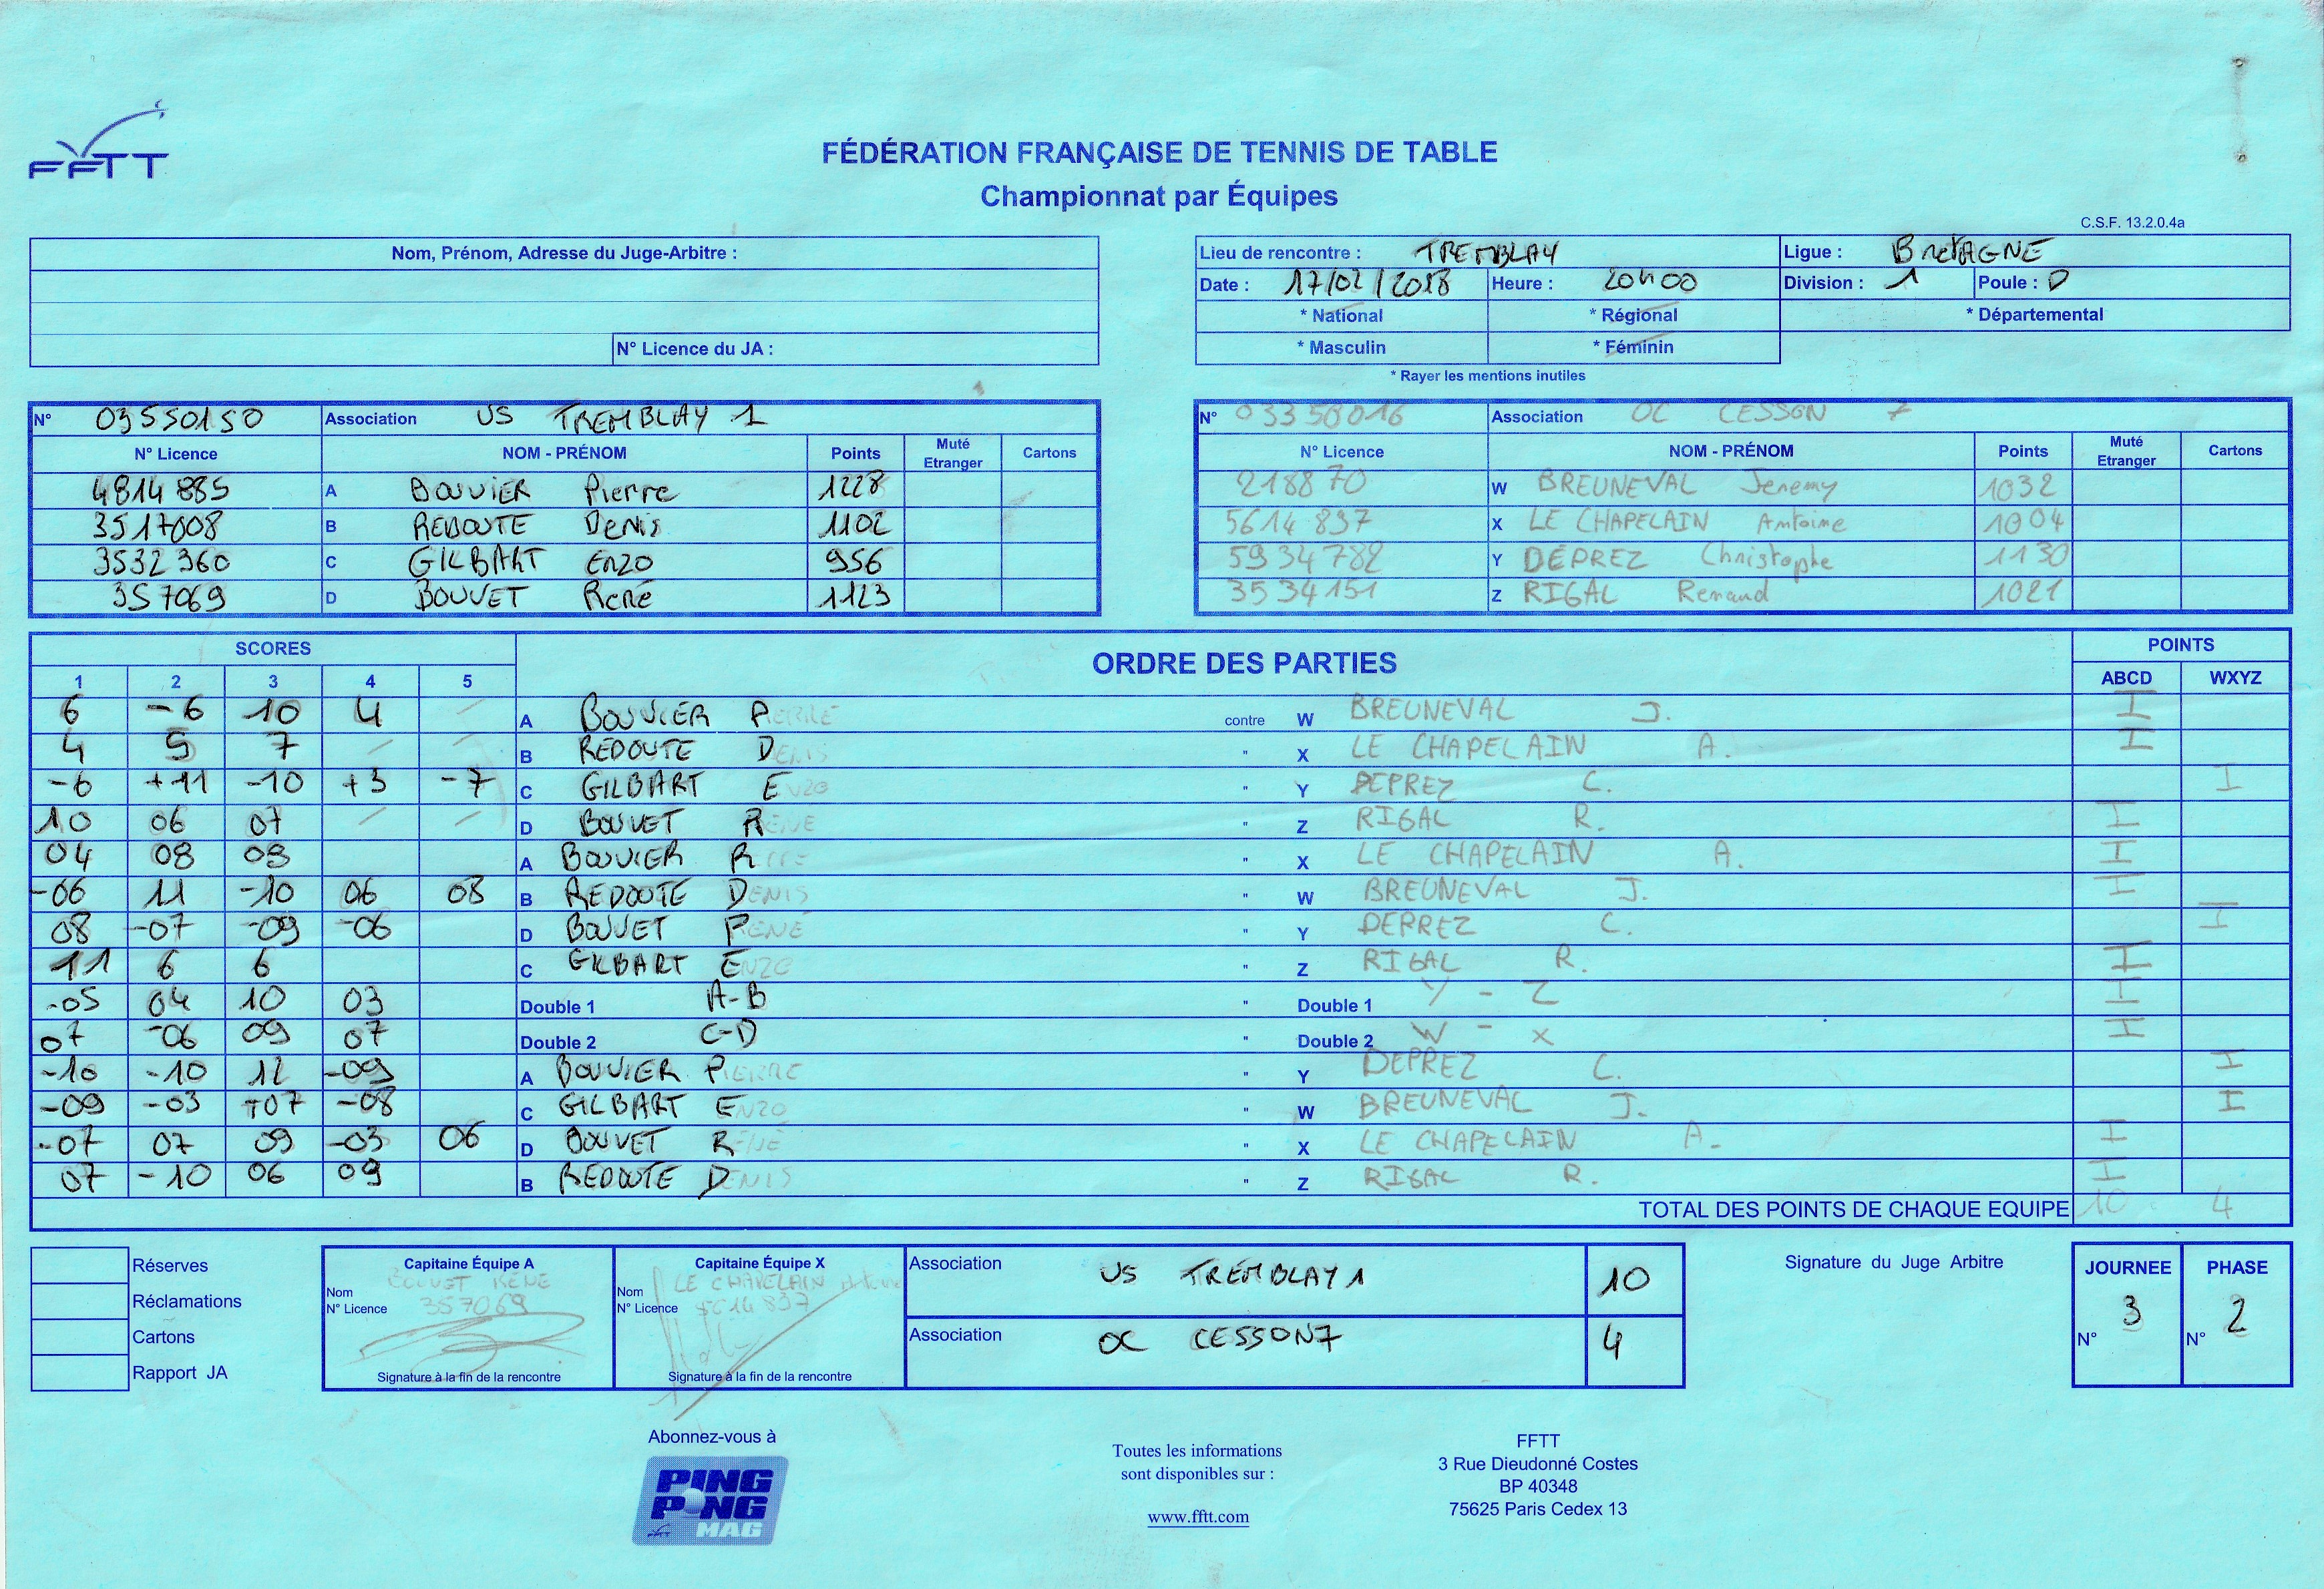 FFTT
FÉDÉRATION FRANÇAISE DE TENNIS DE TABLE
Championnat par Équipes
C.S.F. 13.2.0.4a
Nom, Prénom, Adresse du Juge-Arbitre :
N° Licence du JA :
Lieu de rencontre : TREMBLAY Ligue : BRETAGNE
Date : 17/02/2018 Heure : 20H00 Division : 1 Poule : D
* National * Régional * Départemental
* Masculin * Féminin
* Rayer les mentions inutiles
N° 03550150 Association US TREMBLAY 1
N° Licence NOM - PRÉNOM Points Muté Etranger Cartons
4814885 A BOUVIER Pierre 1228
3517008 B REDOUTE Denis 1102
3532360 C GILBART Enzo 956
357069 D BOUVET René 1123
N° 03350016 Association OC CESSON 7
N° Licence NOM - PRÉNOM Points Muté Etranger Cartons
218870 W BREUNEVAL Jeremy 1032
5614837 X LE CHAPELAIN Antoine 1004
5934782 Y DEPREZ Christophe 1130
3534151 Z RIGAL Renaud 1021
SCORES ORDRE DES PARTIES POINTS
1 2 3 4 5 ABCD WXYZ
6 -6 10 4 / A BOUVIER PIERRE contre W BREUNEVAL J. I
4 5 7 / / B REDOUTE DENIS " X LE CHAPELAIN A. I
-6 +11 -10 +3 -7 C GILBART ENZO " Y DEPREZ C. I
10 06 07 / / D BOUVET RENE " Z RIGAL R. I
04 08 09 A BOUVIER PIERRE " X LE CHAPELAIN A. I
-06 11 -10 06 08 B REDOUTE DENIS " W BREUNEVAL J. I
08 -07 -09 -06 D BOUVET RENE " Y DEPREZ C. I
11 6 6 C GILBART ENZO " Z RIGAL R. I
-05 04 10 03 Double 1 A-B " Double 1 Y - Z I
07 -06 09 07 Double 2 C-D " Double 2 W - X I
-10 -10 12 -09 A BOUVIER PIERRE " Y DEPREZ C. I
-09 -03 +07 -08 C GILBART ENZO " W BREUNEVAL J. I
-07 07 09 -03 06 D BOUVET RENE " X LE CHAPELAIN A. I
07 -10 06 09 B REDOUTE DENIS " Z RIGAL R. I
TOTAL DES POINTS DE CHAQUE EQUIPE 10 4
Réserves
Réclamations
Cartons
Rapport JA
Capitaine Équipe A
Nom BOUVET RENE
N° Licence 357069
Signature à la fin de la rencontre
Capitaine Équipe X
Nom LE CHAPELAIN Antoine
N° Licence 5614837
Signature à la fin de la rencontre
Association US TREMBLAY 1 10
Association OC CESSON 7 4
Signature du Juge Arbitre
JOURNEE PHASE
N° 3 N° 2
Abonnez-vous à
PING PONG MAG
Toutes les informations
sont disponibles sur :
www.fftt.com
FFTT
3 Rue Dieudonné Costes
BP 40348
75625 Paris Cedex 13